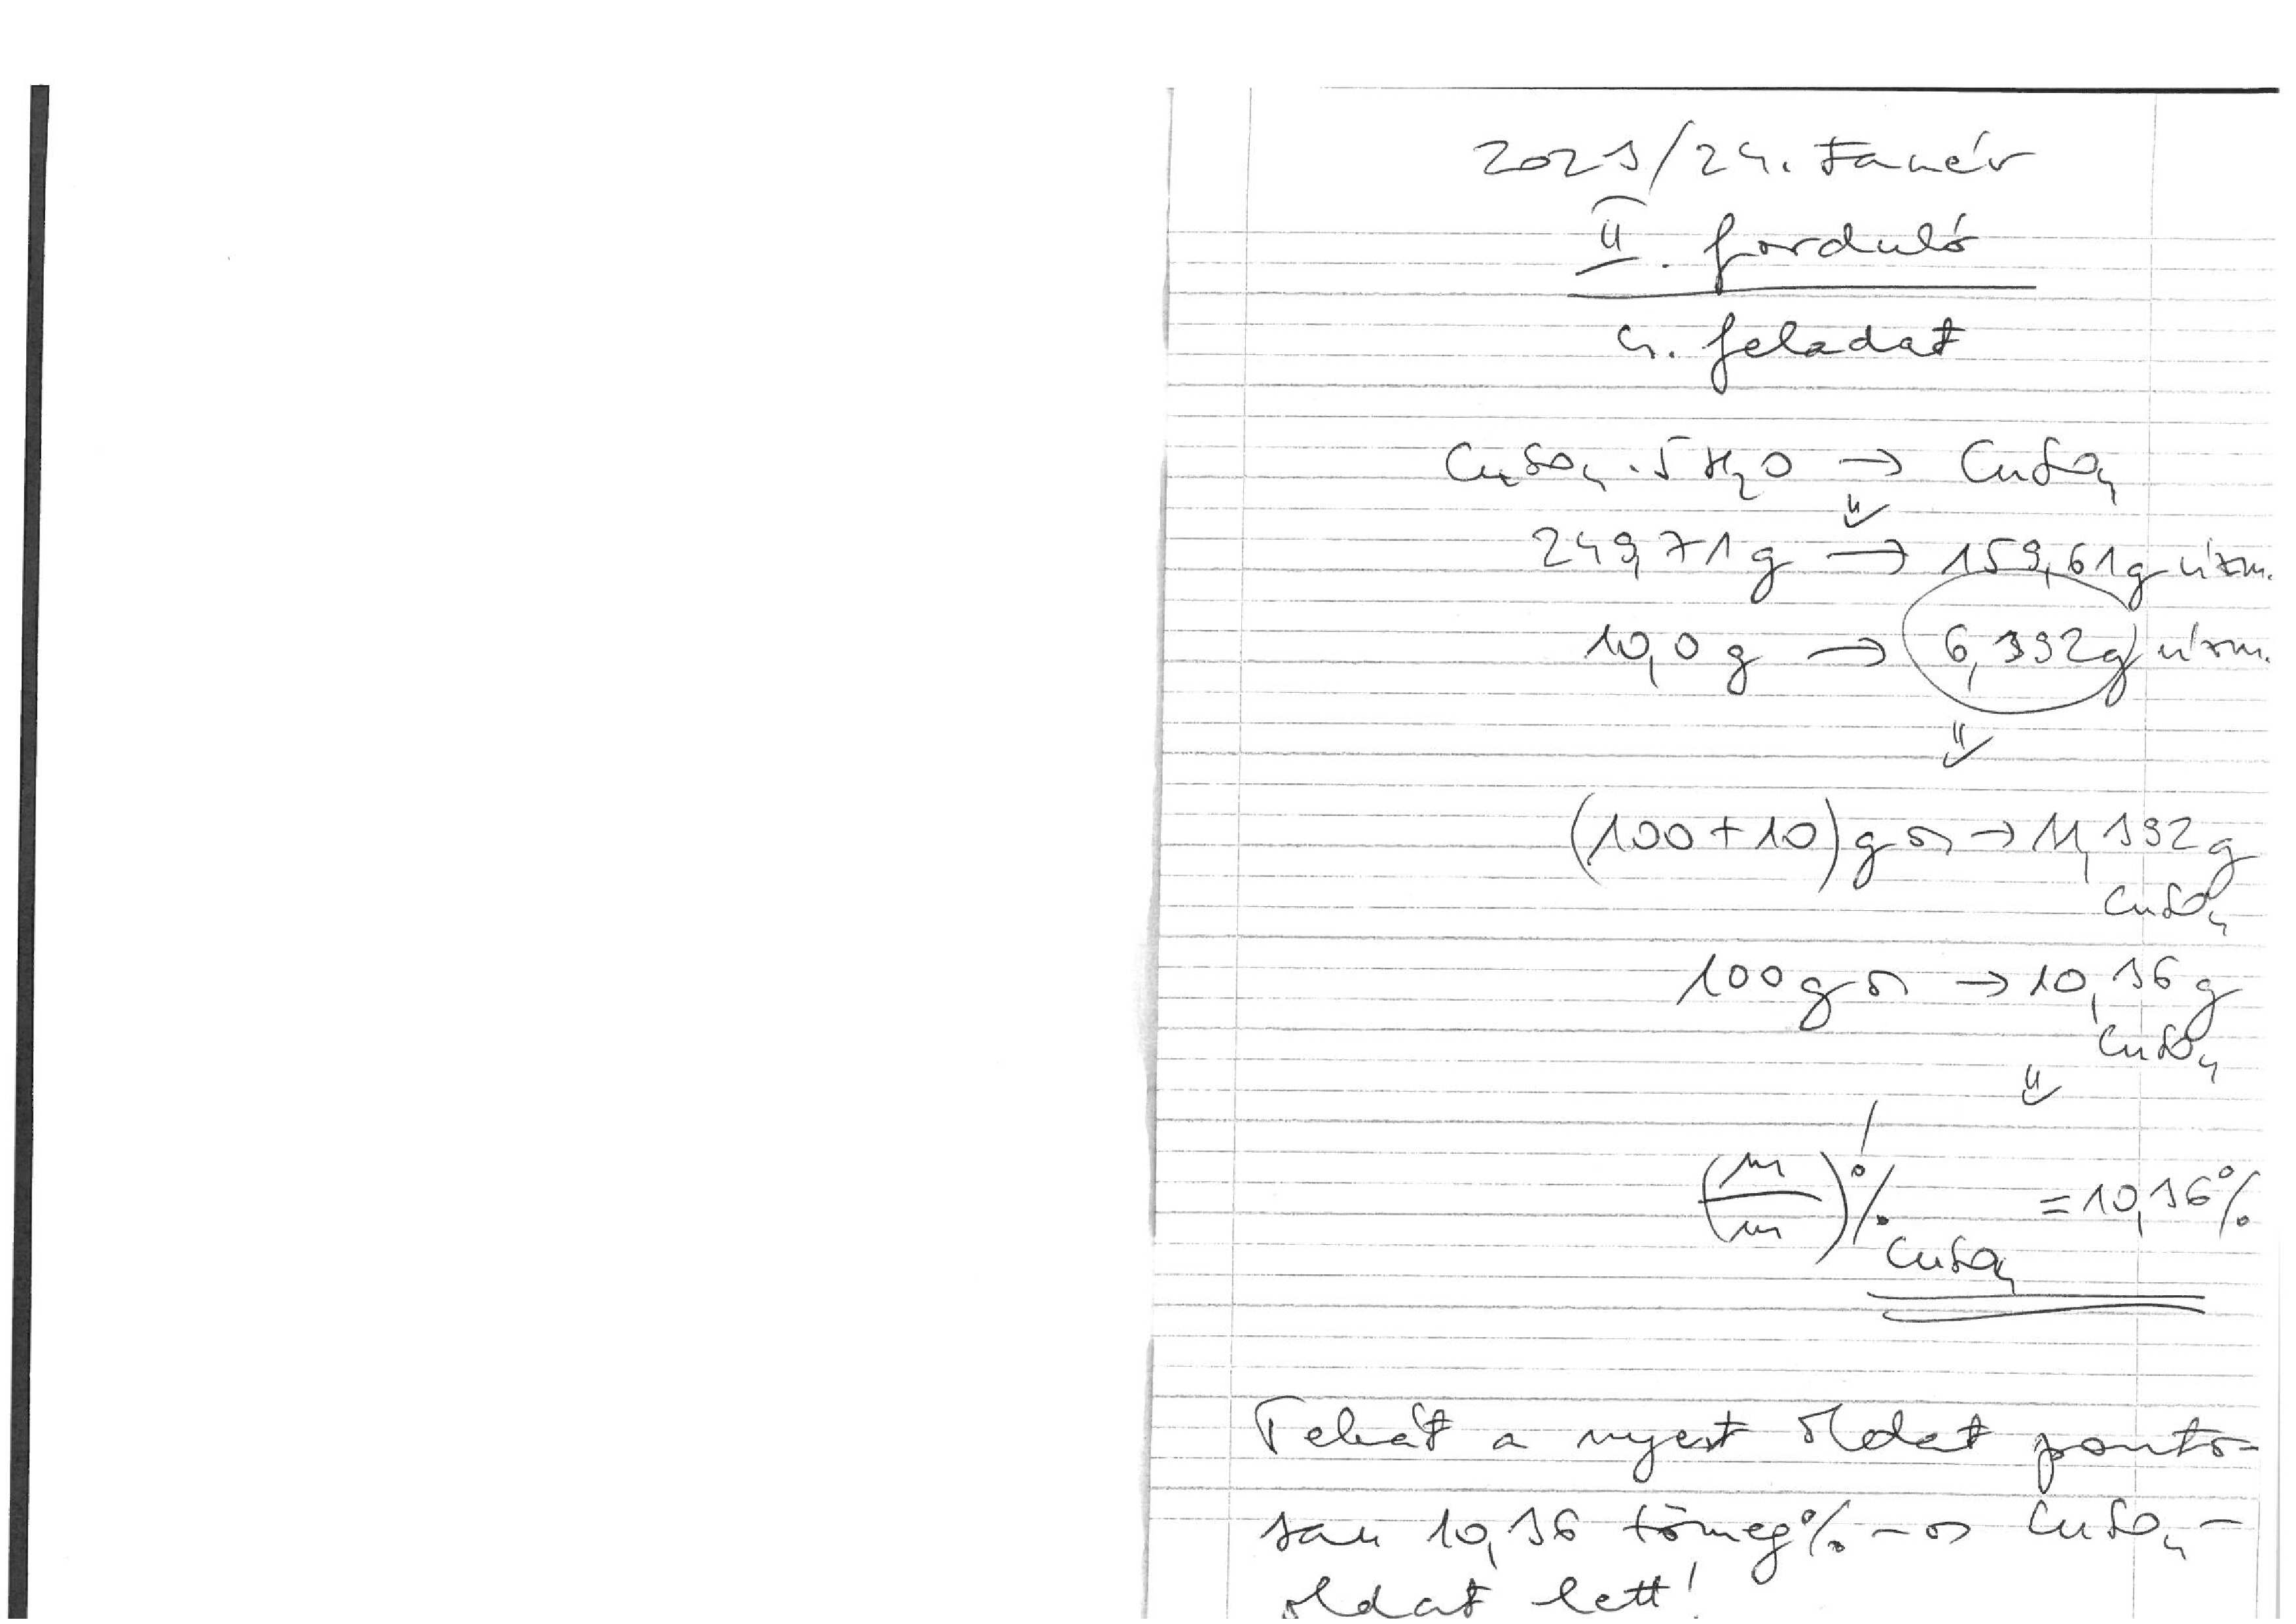 2023/24. Tanév
II. forduló
4. feladat
CuSO₄ · 5 H₂O → CuSO₄
⇓
249,71 g → 159,61 g vízm.
10,0 g → 6,392 g vízm.
⇓
(100 + 10) g o → 11,392 g
CuSO₄
100 g o → 10,36 g
CuSO₄
⇓
(m/m)% CuSO₄ = 10,36%
Tehát a nyert oldat ponto-
san 10,36 tömeg%-os CuSO₄-
oldat lett!